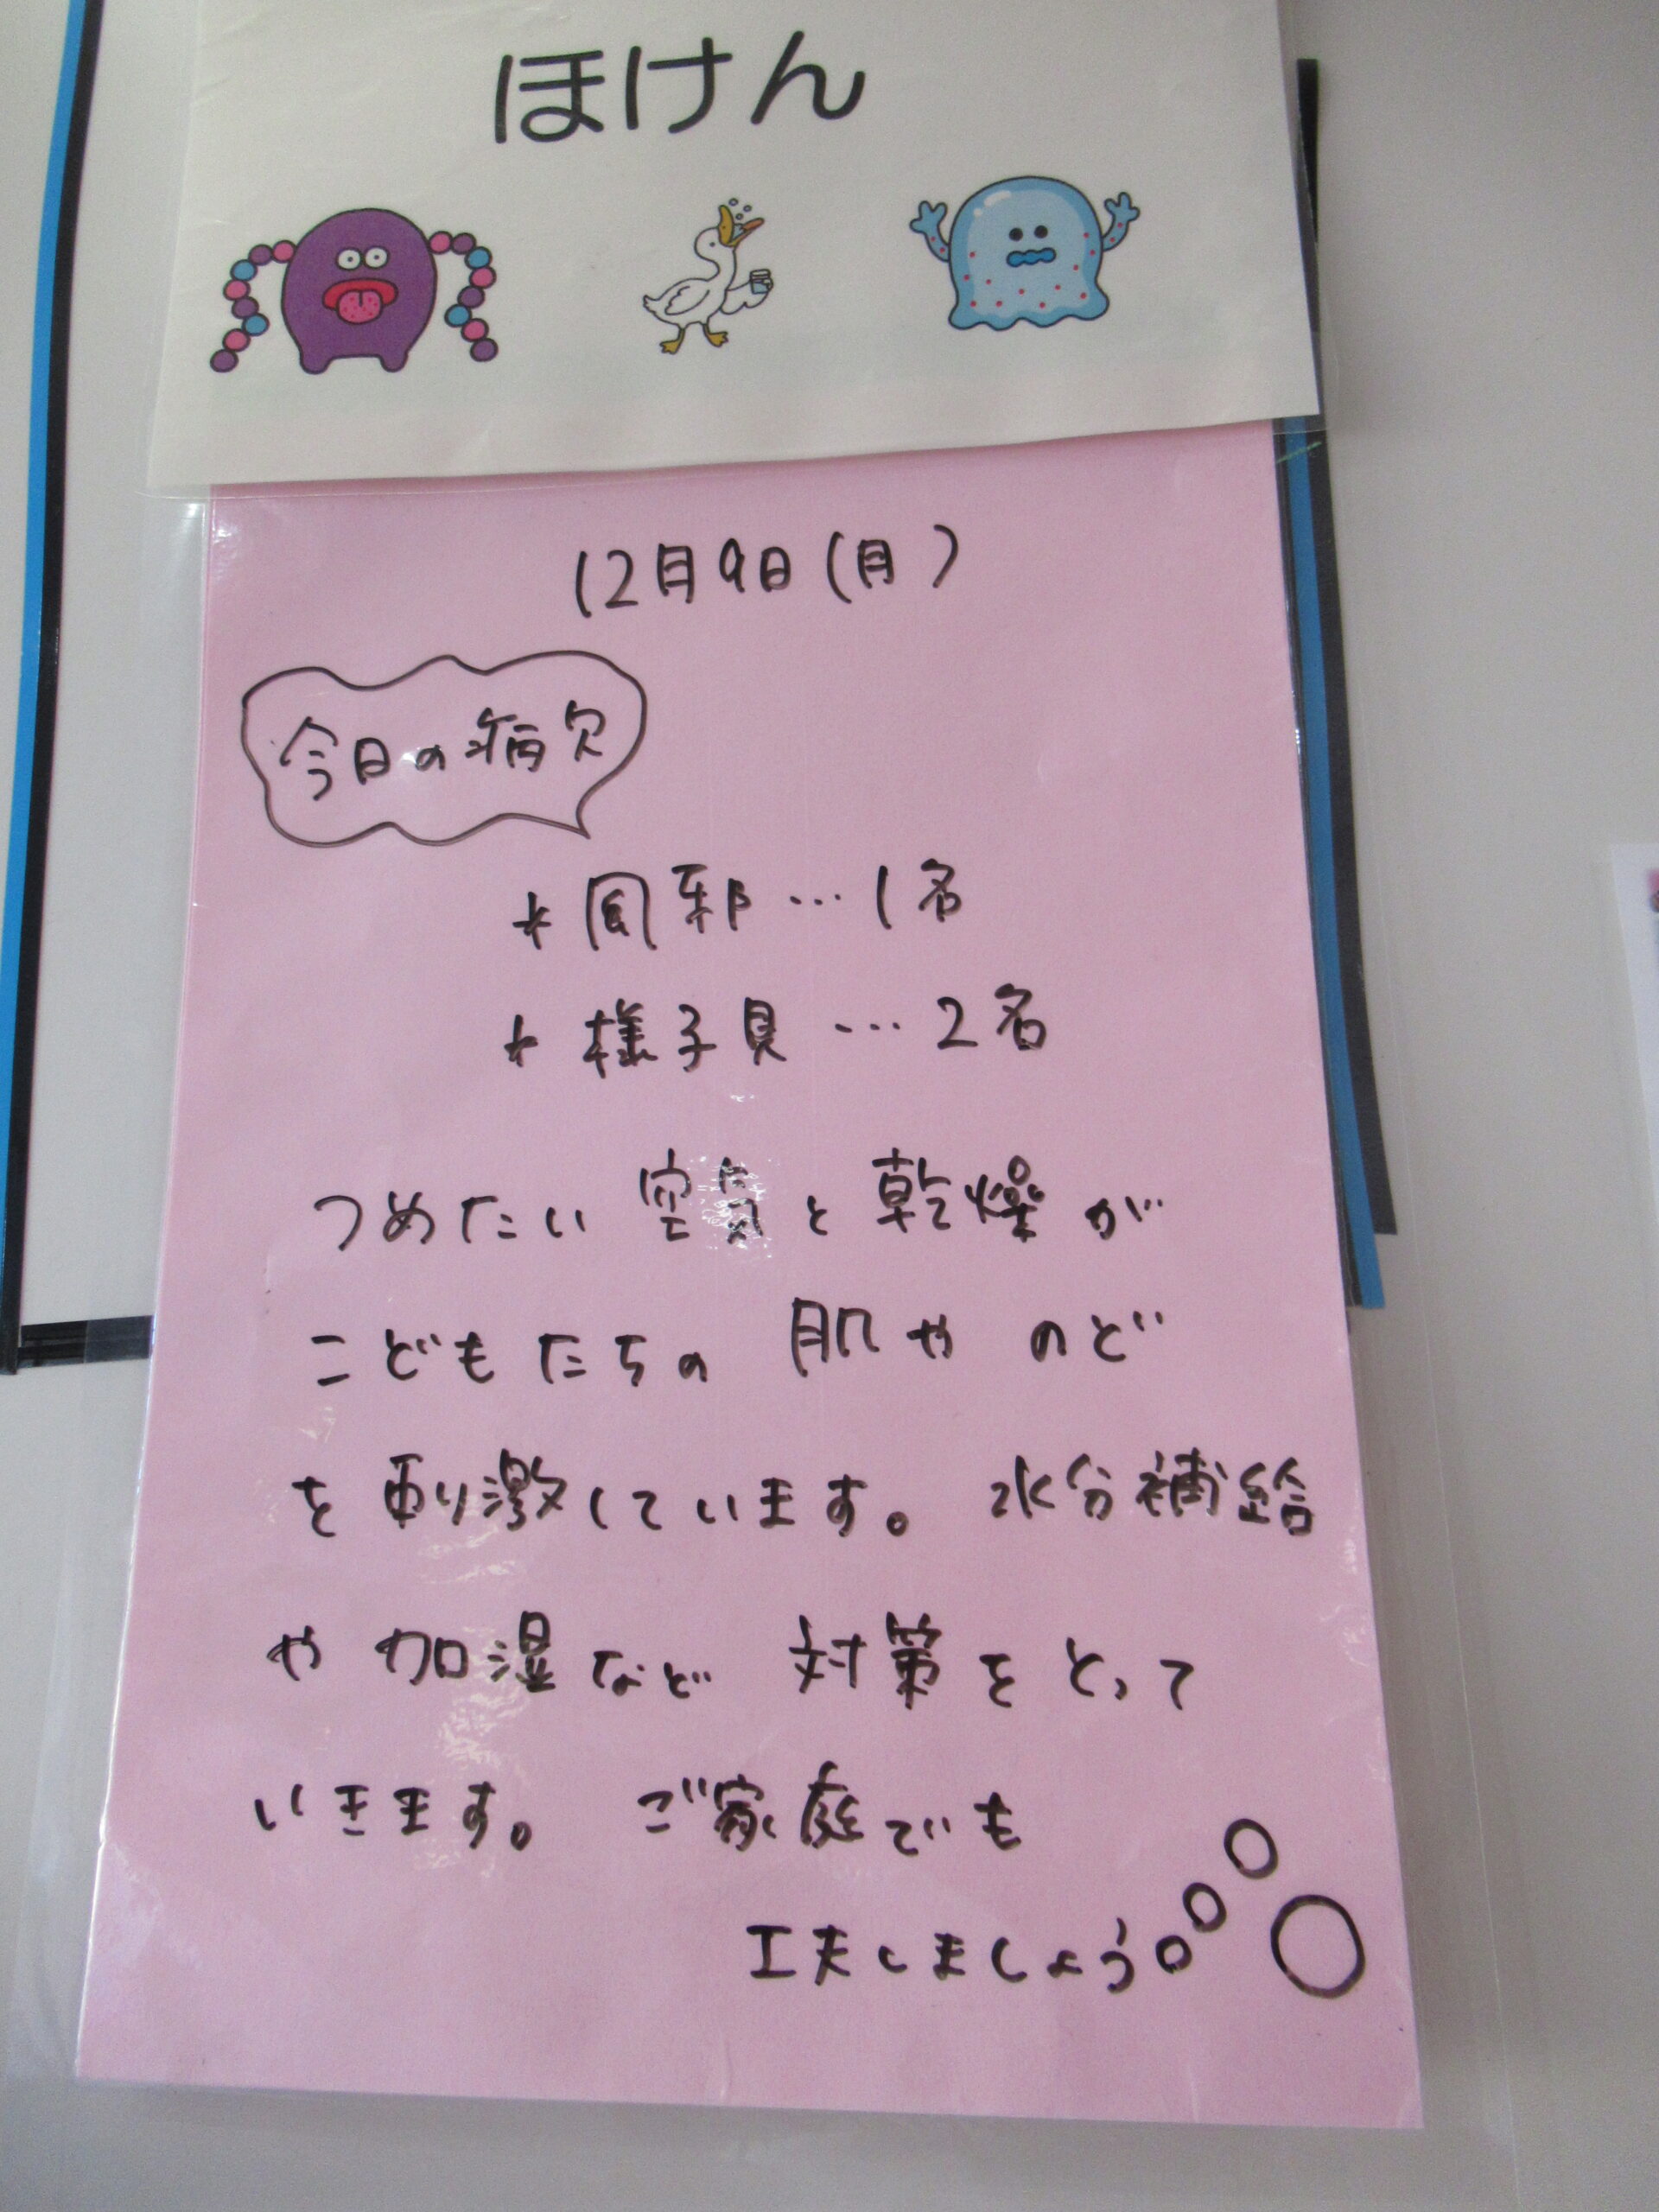 ほけん
12月9日(月)
今日の病欠
* 風邪…1名
* 様子見…2名
つめたい空気と乾燥が
こどもたちの肌やのど
を刺激しています。水分補給
や加湿など対策をとって
いきます。ご家庭でも
工夫しましょう。